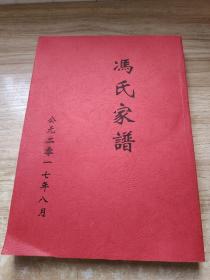 馮氏家譜
公元二零一七年八月